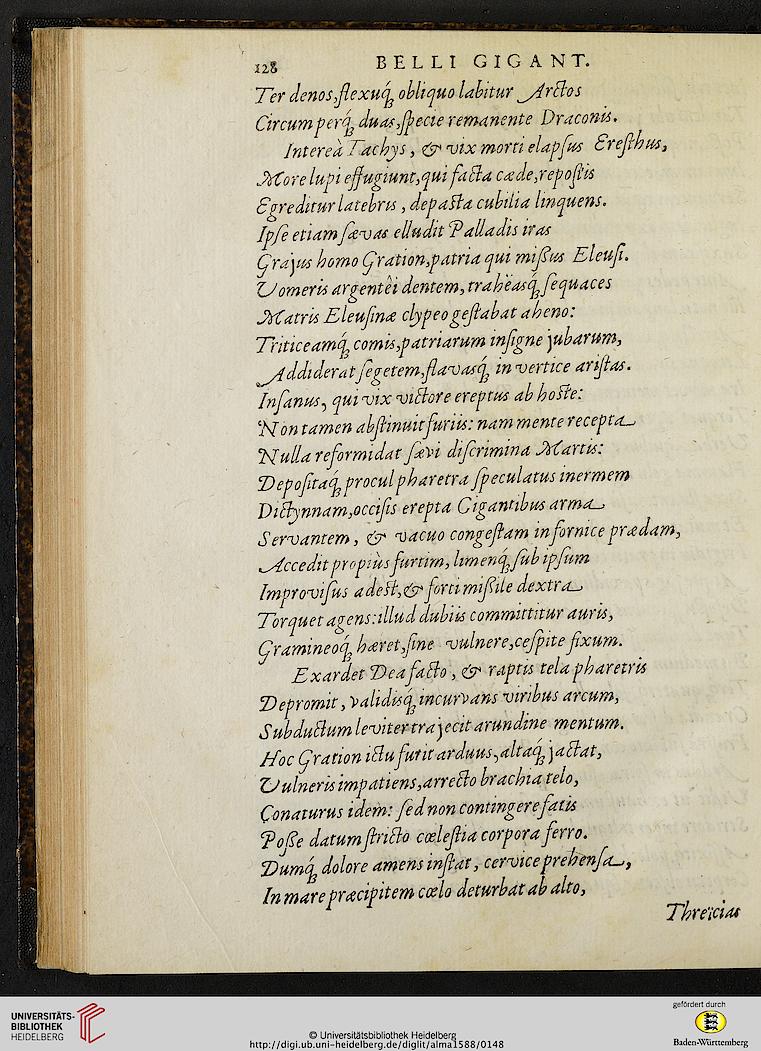 128 BELLI GIGANT.
Ter denos, flexuq́; obliquo labitur Arctos
Circum perq́; duas, specie remanente Draconis.
Intereà Tachys, & vix morti elapsus Eresthus,
More lupi effugiunt, qui facta cæde, repostis
Egreditur latebris, depasta cubilia linquens.
Ipse etiam sævas elludit Palladis iras
Grajus homo Gration, patria qui missus Eleusi.
Vomeris argentêi dentem, trahëasq́; sequaces
Matris Eleusinæ clypeo gestabat aheno:
Triticeamq́; comis, patriarum insigne jubarum,
Addiderat segetem, flavasq́; in vertice aristas.
Insanus, qui vix victore ereptus ab hoste:
Non tamen abstinuit furiis: nam mente recepta
Nulla reformidat sævi discrimina Martis:
Depositaq́; procul pharetra speculatus inermem
Dictynnam, occisis erepta Gigantibus arma
Servantem, & vacuo congestam in fornice prædam,
Accedit propiùs furtim, limenq́; sub ipsum
Improvisus adest, & forti missile dextra
Torquet agens: illud dubiis committitur auris,
Gramineoq́; hæret, sine vulnere, cespite fixum.
Exardet Dea facto, & raptis tela pharetris
Depromit, validisq́; incurvans viribus arcum,
Subductum leviter trajecit arundine mentum.
Hoc Gration ictu furit arduus, altaq́; jactat,
Vulneris impatiens, arrecto brachia telo,
Conaturus idem: sed non contingere fatis
Posse datum stricto cœlestia corpora ferro.
Dumq́; dolore amens instat, cervice prehensa,
In mare præcipitem cœlo deturbat ab alto,
Threïcias
UNIVERSITÄTS-
BIBLIOTHEK
HEIDELBERG
© Universitätsbibliothek Heidelberg
http://digi.ub.uni-heidelberg.de/diglit/alma1588/0148
gefördert durch
Baden-Württemberg